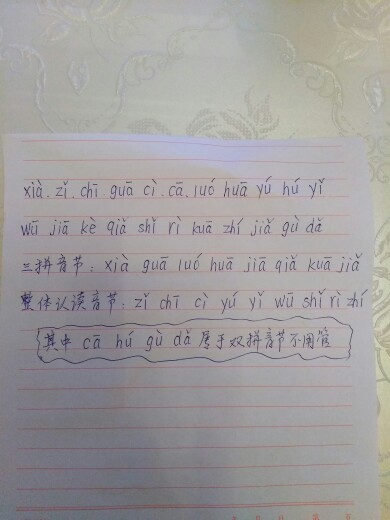 xià. zǐ. chī guā cì. cā. luó huā yú hú yǐ
wū jiā kè qiǎ shǐ rì kuā zhí jiǎ gù dǎ
三拼音节: xià guā luó huā jiā qiǎ kuā jiǎ
整体认读音节: zǐ chī cì yú yǐ wū shǐ rì zhí
其中 cā hú gù dǎ 属于双拼音节不用管